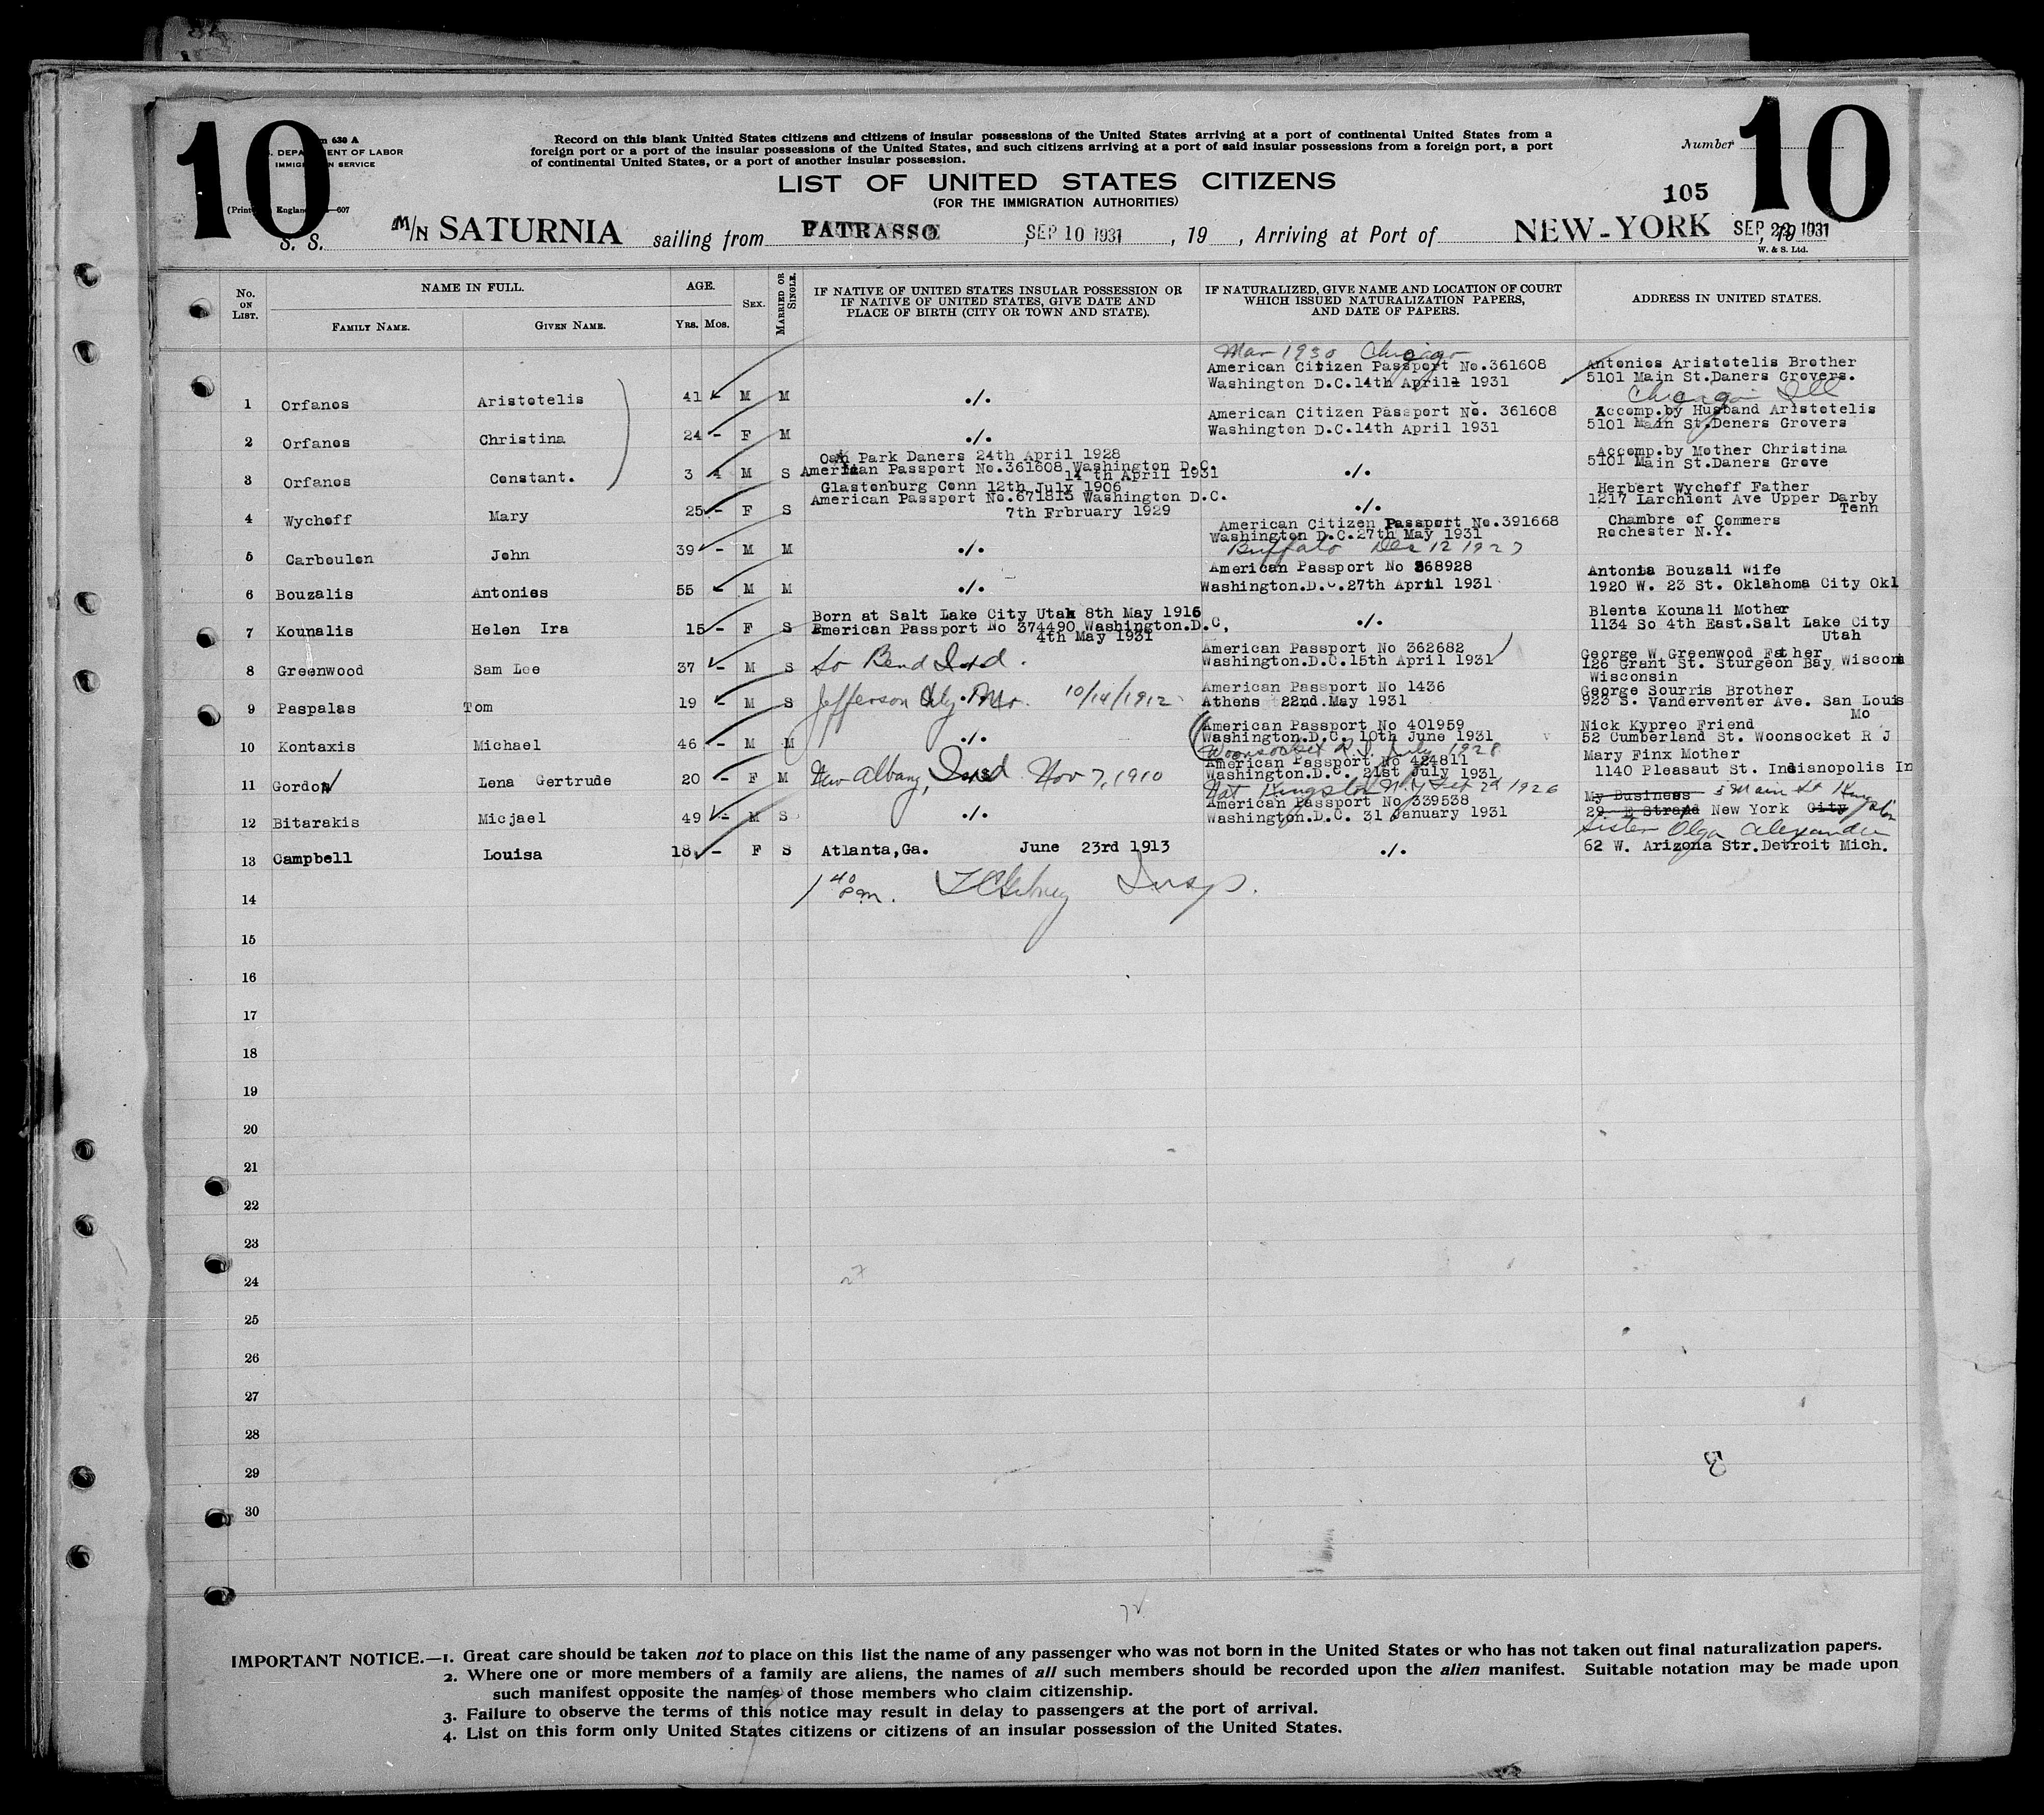 10
10
630 A
DEPARTMENT OF LABOR
IMMIGRATION SERVICE
Record on this blank United States citizens and citizens of insular possessions of the United States arriving at a port of continental United States from a
foreign port or a port of the insular possessions of the United States, and such citizens arriving at a port of said insular possessions from a foreign port, a port
of continental United States, or a port of another insular possession.
Number
LIST OF UNITED STATES CITIZENS
(FOR THE IMMIGRATION AUTHORITIES)
105
S. S. M/N SATURNIA sailing from PATRASSO, SEP 10 1931, 19 , Arriving at Port of NEW-YORK SEP 22 1931, 19
W. & S. Ltd.
No. ON LIST.
NAME IN FULL.
FAMILY NAME.
GIVEN NAME.
AGE.
YRS. MOS.
SEX.
MARRIED OR SINGLE.
IF NATIVE OF UNITED STATES INSULAR POSSESSION OR
IF NATIVE OF UNITED STATES, GIVE DATE AND
PLACE OF BIRTH (CITY OR TOWN AND STATE).
IF NATURALIZED, GIVE NAME AND LOCATION OF COURT
WHICH ISSUED NATURALIZATION PAPERS,
AND DATE OF PAPERS.
ADDRESS IN UNITED STATES.
Mar 1930 Chicago
American Citizen Passport No.361608 Antonios Aristotelis Brother
Washington D.C.14th April 1931 5101 Main St.Daners Grovers.
1 Orfanos Aristotelis 41 M M ./. Chicago Ill
American Citizen Passport No. 361608 Accomp.by Husband Aristotelis
Washington D.C.14th April 1931 5101 Main St.Deners Grovers
2 Orfanos Christina 24 - F M ./.
Oak Park Daners 24th April 1928 Accomp.by Mother Christina
American Passport No.361608 Washington D.C. 5101 Main St.Daners Grove
14 th April 1931
3 Orfanos Constant. 3 4 M S ./.
Glastenburg Conn 12th July 1906 Herbert Wychoff Father
American Passport No.671815 Washington D.C. 1217 Larchient Ave Upper Darby
7th Frbruary 1929 Tenn
4 Wychoff Mary 25 - F S ./.
American Citizen Passport No.391668 Chambre of Commers
Washington D.C.27th May 1931 Rochester N.Y.
5 Carboulen John 39 - M M ./. Buffalo Dec 12 1927
American Passport No 368928 Antonia Bouzali Wife
6 Bouzalis Antonios 55 - M M ./. Washington.D.C.27th April 1931 1920 W. 23 St. Oklahoma City Okl
Born at Salt Lake City Utah 8th May 1916 Blenta Kounali Mother
7 Kounalis Helen Ira 15 - F S American Passport No 374490 Washington.D.C, ./. 1134 So 4th East.Salt Lake City
4th May 1931 Utah
American Passport No 362682 George W Greenwood Father
8 Greenwood Sam Lee 37 - M S So Bend Ind. Washington.D.C.15th April 1931 126 Grant St. Sturgeon Bay Wiscons
Wisconsin
American Passport No 1436 George Sourris Brother
9 Paspalas Tom 19 - M S Jefferson City. Mo. 10/14/1912 Athens 22nd.May 1931 923 S. Vanderventer Ave. San Louis
Mo
American Passport No 401959 Nick Kypreo Friend
10 Kontaxis Michael 46 - M M ./. Washington.D.C. 10th June 1931 52 Cumberland St. Woonsocket R J
Woonsocket R.I. July 1928
American Passport No 424811 Mary Finx Mother
11 Gordon Lena Gertrude 20 - F M New Albany, Ind. Nov 7, 1910 Washington.D.C. 21st July 1931 1140 Pleasaut St. Indianopolis In
Nat Kingston N.Y Feb 2d 1926
American Passport No 339538 My Business 3 Main St Kingston
12 Bitarakis Micjael 49 - M S ./. Washington.D.C. 31 January 1931 29 E Strand New York City
Sister Olga Alexander
13 Campbell Louisa 18 - F S Atlanta,Ga. June 23rd 1913 ./. 62 W. Arizona Str.Detroit Mich.
1 40 pm. Insp.
14
15
16
17
18
19
20
21
22
23
24
25
26
27
28
29
30
IMPORTANT NOTICE.—1. Great care should be taken not to place on this list the name of any passenger who was not born in the United States or who has not taken out final naturalization papers.
2. Where one or more members of a family are aliens, the names of all such members should be recorded upon the alien manifest. Suitable notation may be made upon
such manifest opposite the names of those members who claim citizenship.
3. Failure to observe the terms of this notice may result in delay to passengers at the port of arrival.
4. List on this form only United States citizens or citizens of an insular possession of the United States.